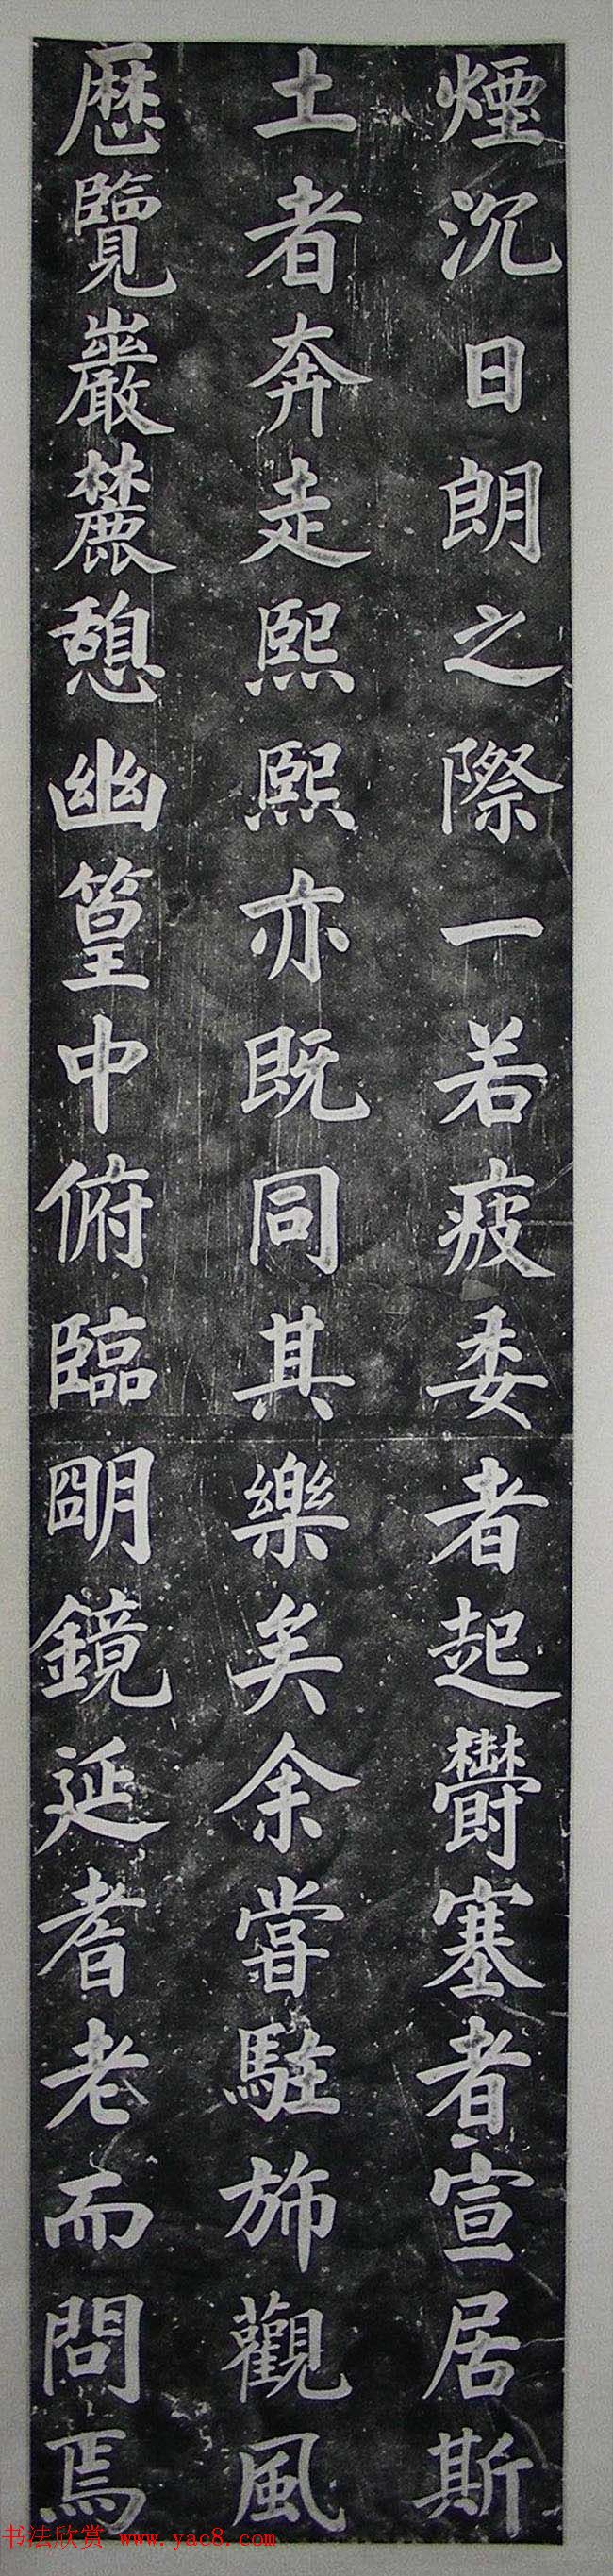 煙沉日朗之際一若疲委者起欝塞者宣居斯
土者奔走熙熙亦既同其樂矣余嘗駐斾觀風
歷覽巖麓憩幽篁中俯臨明鏡延耆老而問焉
书法欣赏 www.yac8.com